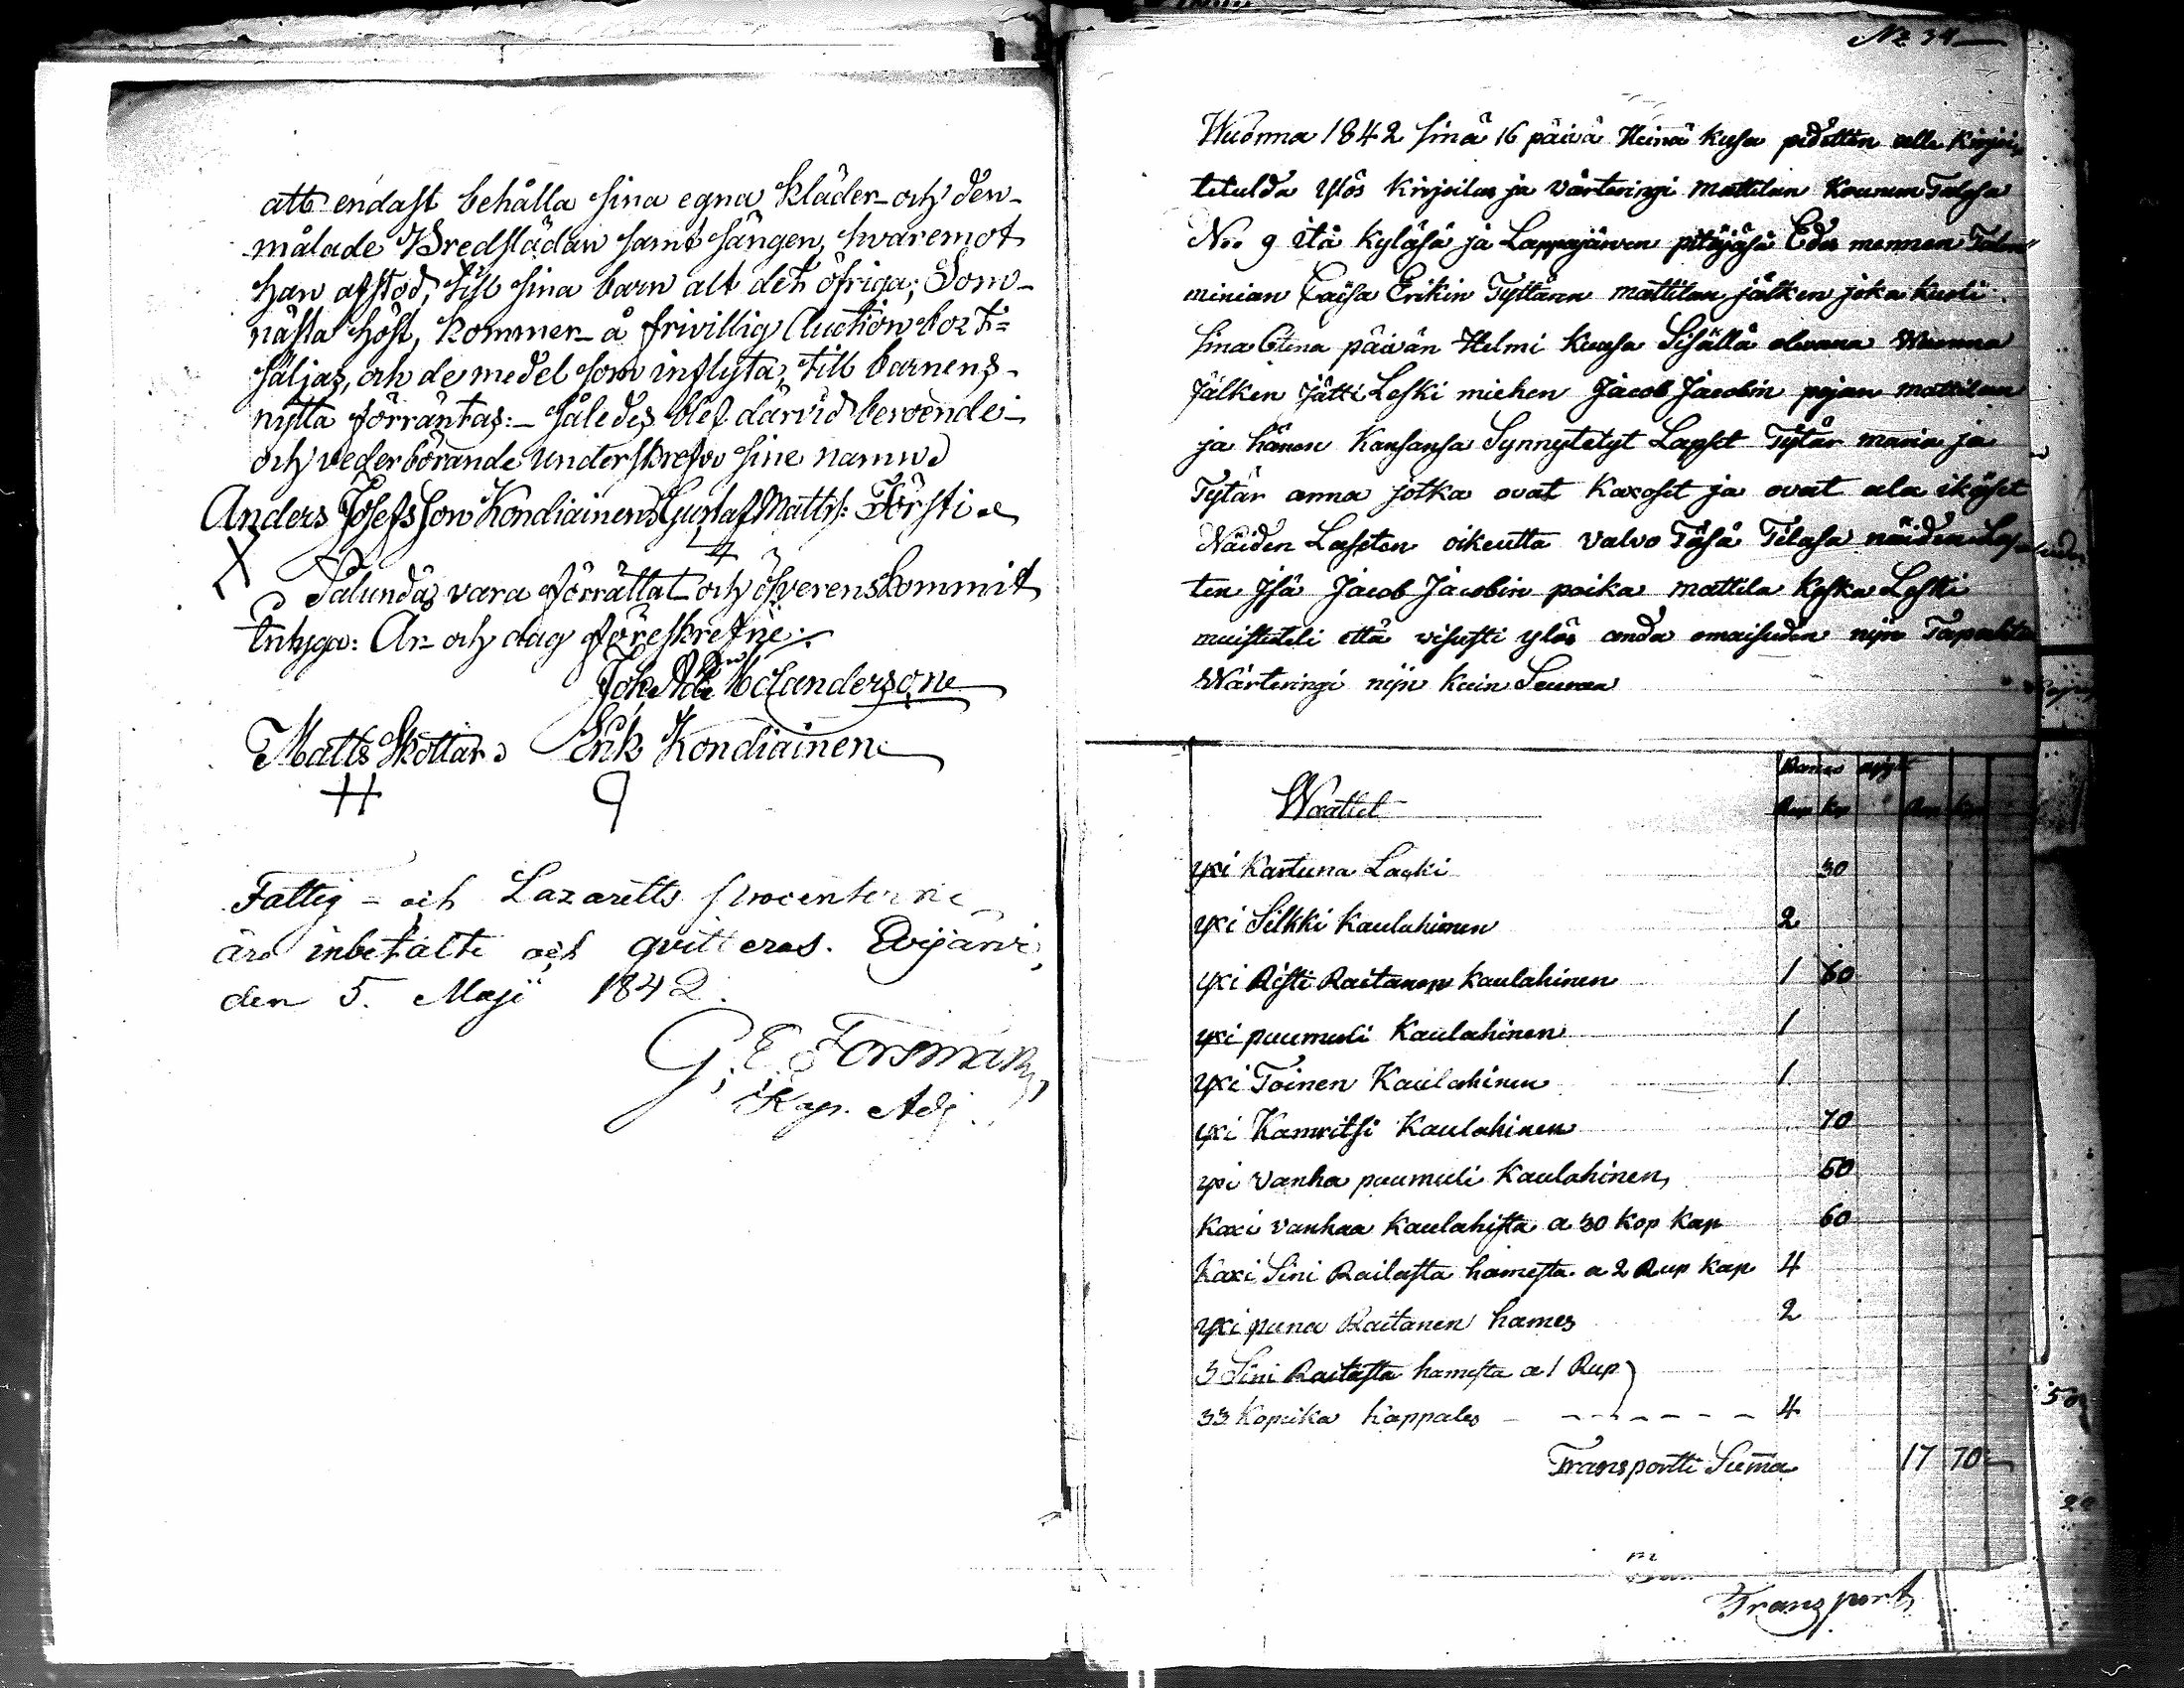 att endast behålla sina egna kläder och den
målade Bredslädan samt sängen, hvaremot
han afstod, till sina barn alt det öfriga; Som
nästa höst, kommer å frivillig Auction bort=
säljas, och de medel som inflyta, till barnens
nytta förräntas:- således blef därvid beroende
och vederbörande underskrefvo sine namn
Anders Josefsson Kondiainen Gustaf Matts: Försti
Salunda vara förrättat och öfverenskommit
intyga: År och dag föreskrefne
Molandersone
Matts Skottar Erik Kondiainen
Fattig= och Lazaretts procenterne
äro inbetalte och qvitteras. Evijärvi
den 5. Maji 1842.
G. E. Forsman,
Kap. Adj.
No 34
Wuonna 1842 sinä 16 päivä Heinä kusa pidettin alle kirjoi,
tetulda ylös kirjoitus ja värteringi mattilan Talosa
No. 9 itä kyläsä ja Lappajärven pitäjäsä Edes mennen Talon
minian Caisa Erikin Tyttären mattilan jälken joka kuoli
sina 6tena päivän Helmi kuusa Sisällä olevana Wuonna
Jälken jätti Leski miehen Jacob Jacobin pojan mattilan
ja hänen kansansa Synnytetyt Lapset Tytär maria ja
Tytär anna jotka ovat kaxoset ja ovat ala ikäset
Näiden Lapseten oikeutta valvo Täsä Tilasa näiden Lapse
ten Isä Jacob Jacobin poika mattila koska Leski
muistuteli että visusti ylös anda omaisuden nijn Tapahtu
Wärteringi nijn kuin Seuraa
Waattet
Rup Kop Rup Kop
yxi Kartuna Lacki 30
yxi Silkki Kaulahinen 2
yxi Risti Raitanen Kaulahinen 1 60
yxi puumuli Kaulahinen 1
yxi Toinen Kaulahinen 1
yxi Kamritsi Kaulahinen 70
yxi vanha puumuli Kaulahinen 50
Kaxi vanhaa Kaulahista a 30 Kop Kap 60
Kaxi Sini Railasta hamesta a 2 Rup Kap 4
yxi puna Raitanen hames 2
3 Sini Raitasta hamesta a 1 Rup
33 Kopeika Kappales 4
Transportti Suma 17 70
Transport